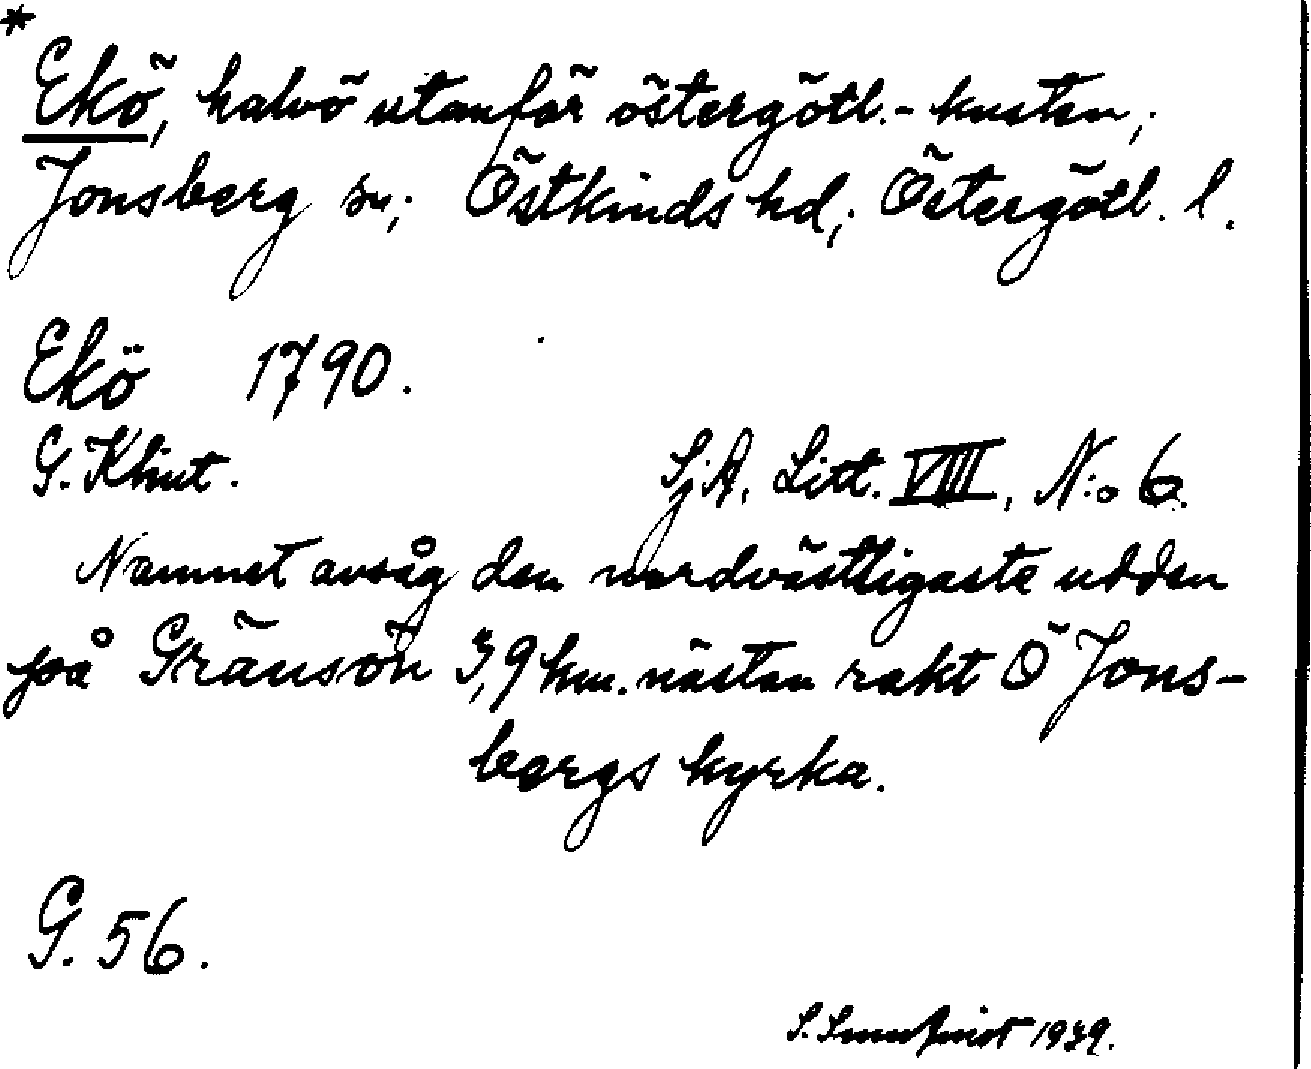 *
Ekö, halvö utanför östergötl.-kusten,
Jonsberg sn; Östkinds hd, Östergötl. l.
Ekö 1790.
G. Klint. SjA. Litt. VIII, N:o 6.
Namnet avsåg den nordvästligaste udden
på Gränsön 3,9 km. nästan rakt Ö Jons-
bergs kyrka.
G. 56.
S. 1939.